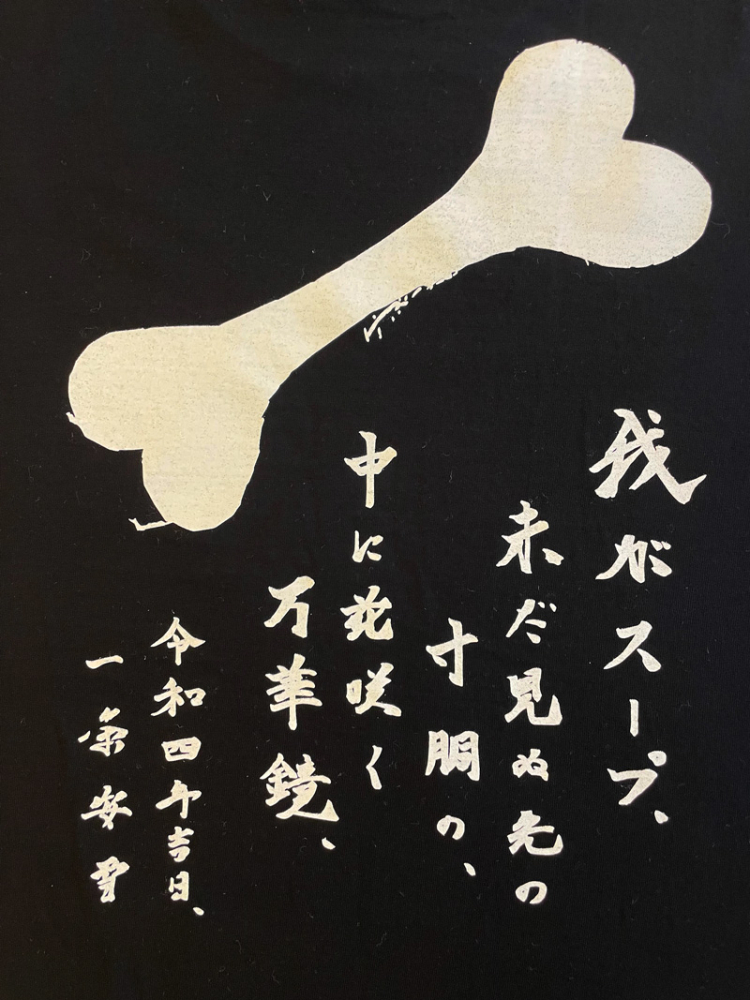 我がスープ、
未だ見ぬ先の
寸胴の、
中に花咲く
万華鏡、
令和四年吉日、
一条安雪